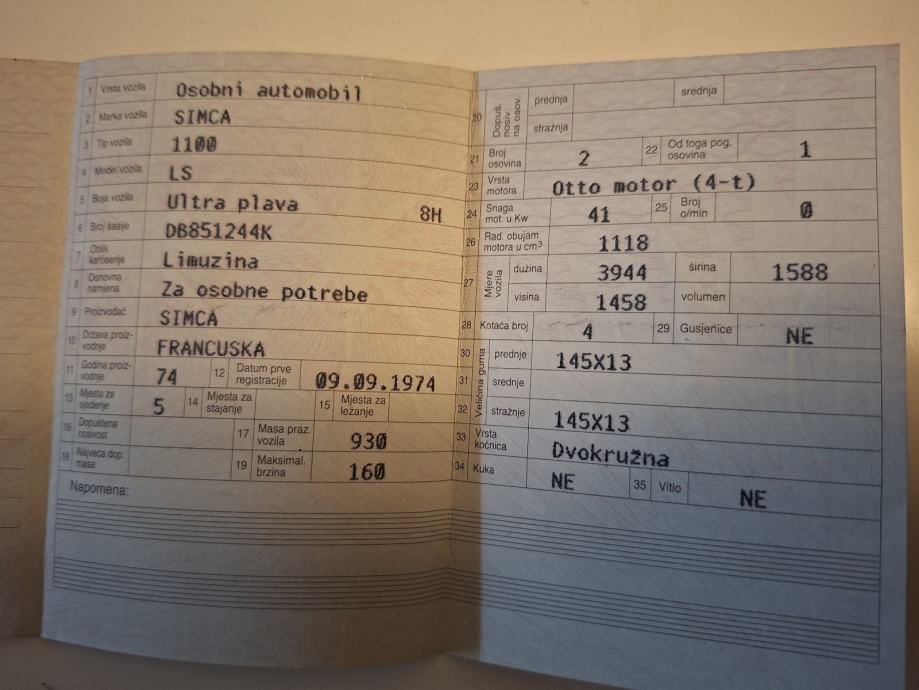 1 Vrsta vozila Osobni automobil
2 Marka vozila SIMCA
3 Tip vozila 1100
4 Model vozila LS
5 Boja vozila Ultra plava 8H
6 Broj šasije DB851244K
7 Oblik karoserije Limuzina
8 Osnovna namjena Za osobne potrebe
9 Proizvođač SIMCA
10 Država proiz-vodnje FRANCUSKA
11 Godina proiz-vodnje 74 12 Datum prve registracije 09.09.1974
13 Mjesta za sjedenje 5 14 Mjesta za stajanje 15 Mjesta za ležanje
16 Dopuštena nosivost 17 Masa praz. vozila 930
18 Najveća dop. masa 19 Maksimal. brzina 160
Napomena:
20 Dopuš. nosiv. na osov. prednja srednja
stražnja
21 Broj osovina 2 22 Od toga pog. osovina 1
23 Vrsta motora Otto motor (4-t)
24 Snaga mot. u Kw 41 25 Broj o/min 0
26 Rad. obujam motora u cm³ 1118
27 Mjere vozila dužina 3944 širina 1588
visina 1458 volumen
28 Kotača broj 4 29 Gusjenice NE
30 Veličina guma prednje 145X13
31 srednje
32 stražnje 145X13
33 Vrsta kočnica Dvokružna
34 Kuka NE 35 Vitlo NE